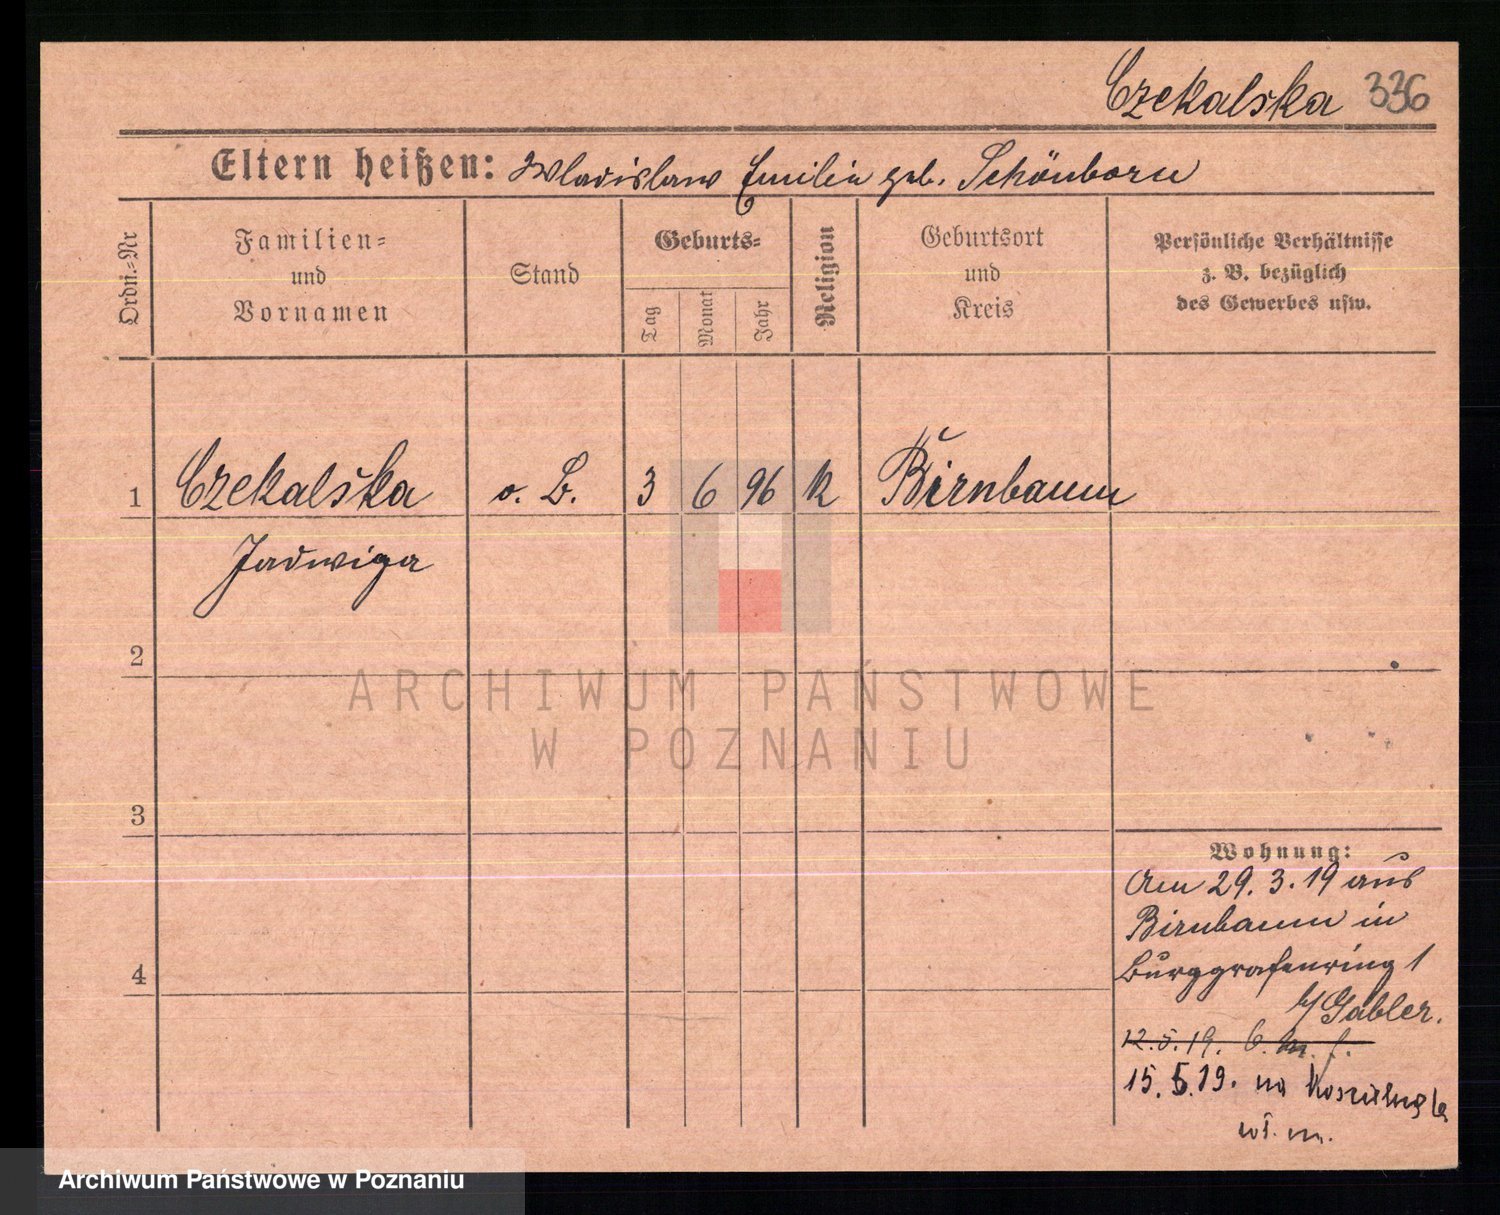 Czekalska 336
Eltern heißen: Wladislaw Emilie geb. Schönborn
Ordn.-Nr
Familien- und Vornamen
Stand
Geburts-
Tag
Monat
Jahr
Religion
Geburtsort und Kreis
Persönliche Verhältnisse z. B. bezüglich des Gewerbes usw.
1 Czekalska o. B. 3 6 96 k Birnbaum
Jadwiga
2
ARCHIWUM PAŃSTWOWE
W POZNANIU
3
Wohnung:
Am 29.3.19 aus
Birnbaum in
4
Burggrafenring 1
b/ Gabler.
12.5.19.
15.5.19. na
wł. m.
Archiwum Państwowe w Poznaniu